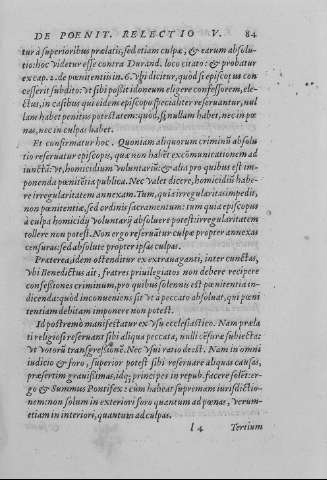 DE POENIT. RELECTIO V. 84
tur à superioribus prælatis, sed etiam culpæ, & earum absolu-
tio: hoc videtur esse contra Durand. loco citato: & probatur
ex cap. 2. de pœnitentiis in. 6. vbi dicitur, quòd si episcopus con
cesserit subdito: vt sibi possit idoneum eligere confessorem, ele-
ctus, in casibus qui eidem episcopo specialiter reseruantur, nul
lam habet penitus potestatem: quòd, si nullam habet, nec in pœ
nas, nec in culpas habet.
Et confirmatur hoc. Quoniam aliquorum criminũ absolu
tio reseruatur episcopis, quæ non habẽt excõmunicationem ad
iunctã: vt, homicidium voluntariũ: & alia pro quibus est im-
ponenda pœnitẽtia publica. Nec valet dicere, homicidiũ habe-
re irregularitatem annexam. Tum, quia irregularitas impedit,
non pœnitentiæ, sed ordinis sacramentum: tum quia episcopus
à culpa homicidij voluntarij absoluere potest: irregularitatem
tollere non potest. Non ergo reseruãtur culpæ propter annexas
censuras: sed absolutè propter ipsas culpas.
Præterea, idem ostenditur ex extrauaganti, inter cunctas,
vbi Benedictus ait, fratres priuilegiatos non debere recipere
confessiones criminum, pro quibus solennis est pœnitentia in-
dicenda: quòd inconueniens sit vt à peccato absoluat, qui pœni
tentiam debitam imponere non potest.
Id postremò manifestatur ex vsu ecclesiastico. Nam præla
ti religiosi reseruant sibi aliqua peccata, nulli cẽsuræ subiecta:
vt votorũ transgressionẽ. Nec vsui ratio deest. Nam in omni
iudicio & foro, superior potest sibi reseruare aliquas causas,
præsertim grauissimas, idq; princeps in repub. facere solet: er-
go & Summus Pontifex: cùm habeat supremam iurisdictio-
nem: non solùm in exteriori foro quantum ad pœnas, verùm-
etiam in interiori, quantum ad culpas.
l 4 Tertium